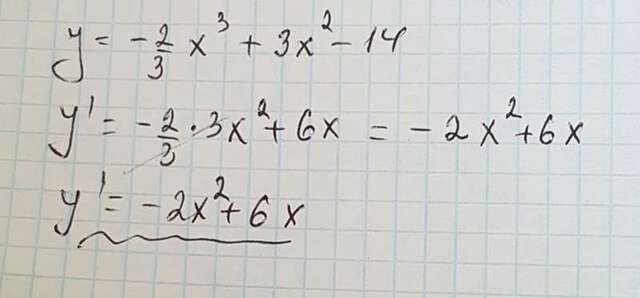 y = -2/3 x³ + 3x² - 14
y' = -2/3 · 3x² + 6x = -2x² + 6x
y' = -2x² + 6x